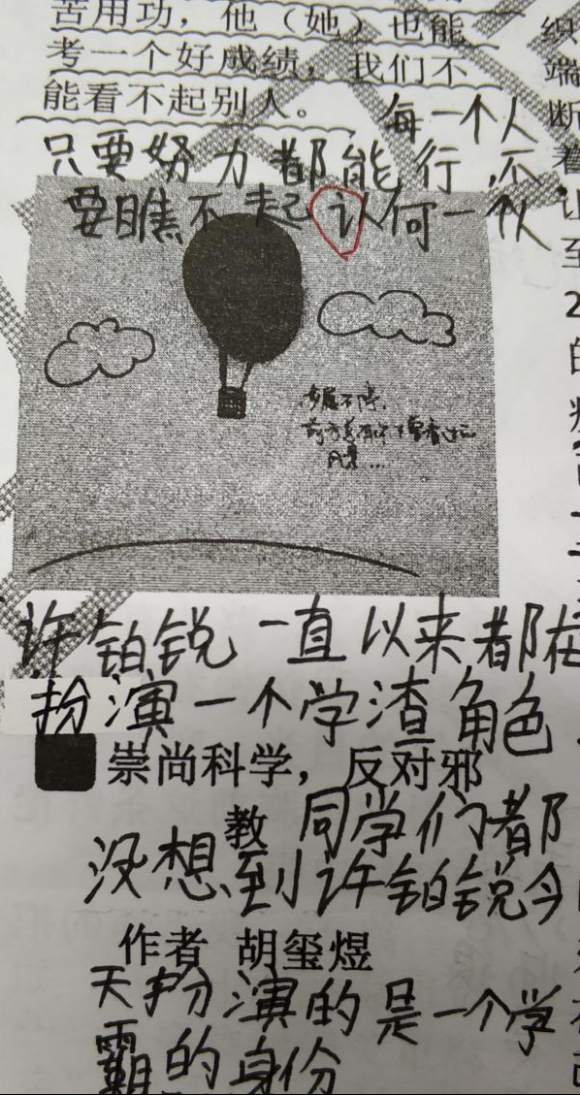 苦用功，他（她）也能
考一个好成绩，我们不
能看不起别人。
每一个人
只要努力都能行，不
要瞧不起认何一个人
许铂锐一直以来都在
扮演一个学渣角色
崇尚科学，反对邪
教
同学们都
没想到许铂锐今
作者 胡玺煜
天扮演的是一个学
霸的身份
织
端
断
着
让
至
2
的